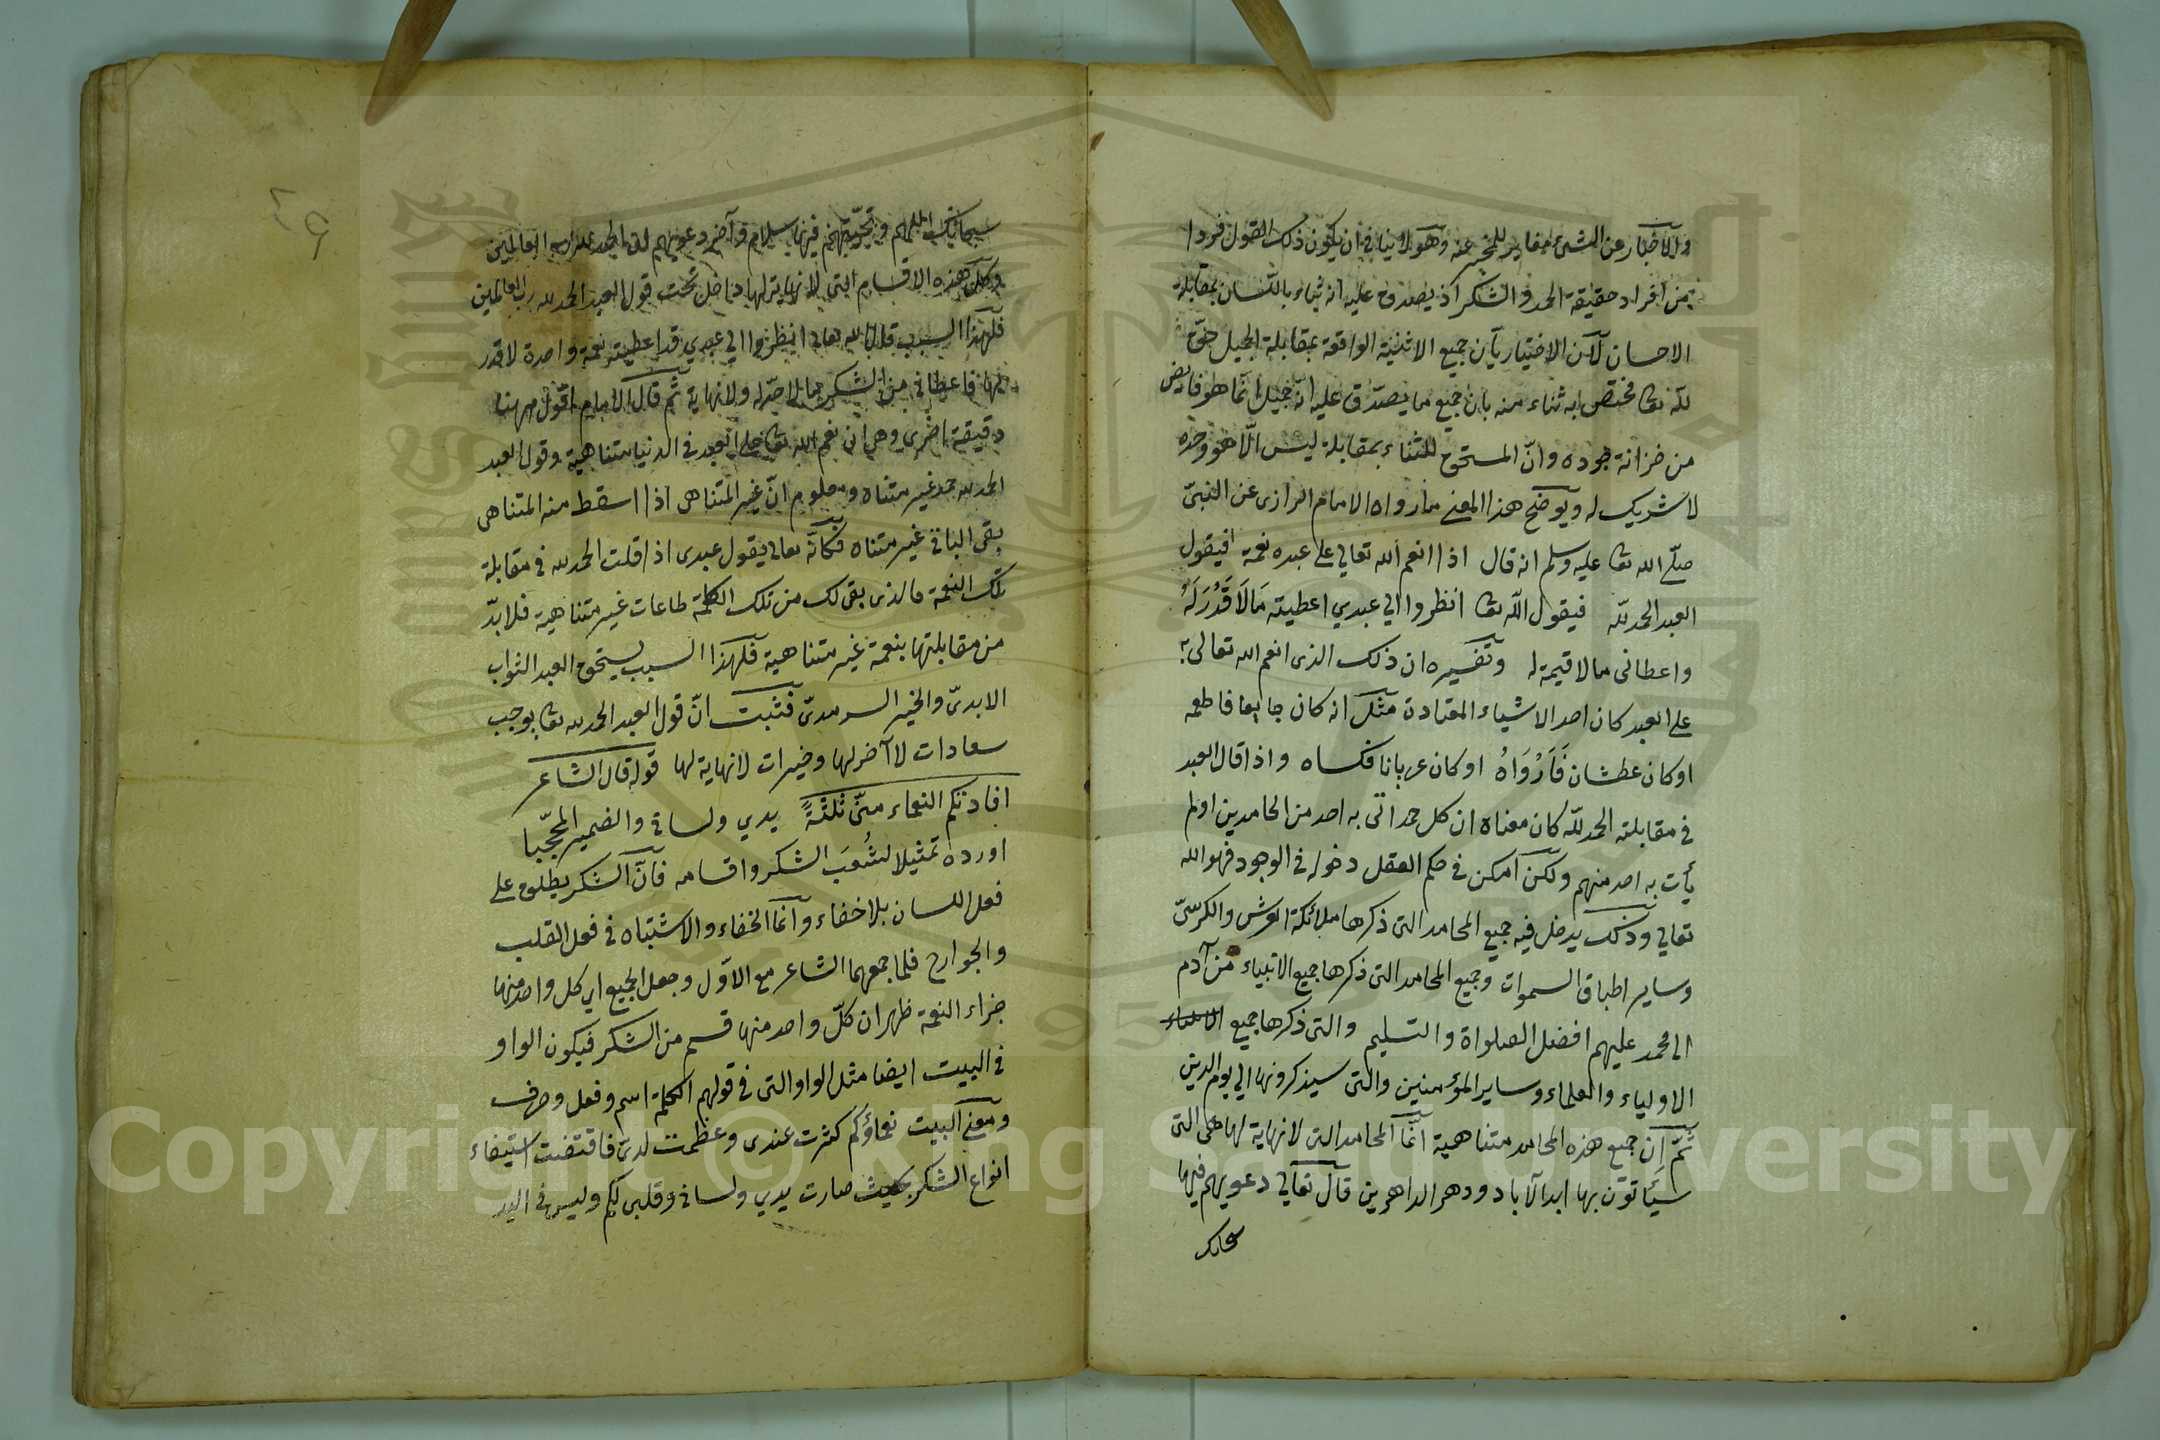 والاخبار عن الشئ مغاير للمخبر عنه وهو لا ينافي ان يكون ذلك القول فردا
من افراد حقيقة الحمد والشكر اذ يصدق عليه انه ثناء باللسان بمقابلة
الاحسان لان الاختيار بان جميع الاثنية الواقعة بمقابلة الجميل حق
لله تعا مختص به ثناء منه بان جميع ما يصدق عليه انه جميل انما هو فايض
من خزانة جوده وان المستحق للثناء بمقابلة ليس الا هو وحده
لا شريك له ويوضح هذا المعنى ما رواه الامام الرازى عن النبي
صلى الله تعا عليه وسلم انه قال اذا انعم الله تعالى على عبده نعمة فيقول
العبد الحمد لله فيقول الله تعا انظروا الى عبدي اعطيته مَالَا قَدْرَ لَهُ
واعطانى مالا قيمة له وتفسيره ان ذلك الذى انعم الله تعالى به
على العبد كان احد الاشياء المعتادة مثل انه كان جايعا فاطعمه
او كان عطشان فَاَرْوَاهُ او كان عريانا فكساه واذا قال العبد
في مقابلته الحمد لله كان معناه ان كل حمد اتى به احد من الحامدين او لم
يأت به احد منهم ولكن امكن في حكم العقل دخوله في الوجود فهو الله
تعالى وذلك يدخل فيه جميع المحامد التى ذكرها ملائكة العرش والكرسى
وساير اطباق السموات وجميع المحامد التى ذكرها جميع الانبياء من آدم
الى محمد عليهم افضل الصلواة والتسليم والتى ذكرها جميع
الاولياء والعلماء وساير المؤمنين والتى سيذكرونها الى يوم الدين
ثم ان جميع هذه المحامد متناهية انما المحامد التى لا نهاية لها هى التى
سيأتون بها ابد الآباد ودهر الداهرين قال تعالى دعويهم فيها
سبحانك
سبحانك اللهم وتحيتهم فيها سلام وآخر دعويهم ان الحمد لله رب العالمين
وكل هذه الاقسام التى لا نهاية لها داخل تحت قول العبد الحمد لله رب العالمين
فلهذا السبب قال الله تعالى انظروا الى عبدي قد اعطيته نعمة واحدة لا قدر
لها فاعطانى من الشكر ما لا حد له ولا نهاية ثم قال الامام اقول ههنا
دقيقة اخرى وهى ان نعم الله تعا على العبد في الدنيا متناهية وقول العبد
الحمد لله حمد غير متناه ومعلوم ان غير المتناهى اذا اسقط منه المتناهى
بقى الباقى غير متناه فكانه تعالى يقول عبدى اذا قلت الحمد لله في مقابلة
تلك النعمة فالذى بقى لك من تلك الكلمة طاعات غير متناهية فلا بد
من مقابلتها بنعمة غير متناهية فلهذا السبب يستحق العبد الثواب
الابدي والخير السرمدي فثبت ان قول العبد الحمد لله تعا يوجب
سعادات لا آخر لها وخيرات لا نهاية لها قوله قال الشاعر
افادتكم النعماء منى ثلثةً يدي ولساني والضمير المحجبا
اورده تمثيلا لشُعَب الشكر واقسامه فان الشكر يطلق على
فعل اللسان بلا خفاء وانما الخفاء والاشتباه في فعل القلب
والجوارح فلما جمعهما الشاعر مع الاول وجعل الجميع اي كل واحد منها
جزاء النعمة ظهر ان كل واحد منها قسم من الشكر فيكون الواو
في البيت ايضا مثل الواو التى في قولهم الكلمة اسم وفعل وحرف
ومعنى البيت نعماؤكم كثرت عندى وعظمت لدي فاقتضت استيفاء
انواع الشكر بحيث صارت يدي ولساني وقلبى لكم وليس في اليد
Copyright © King Saud University